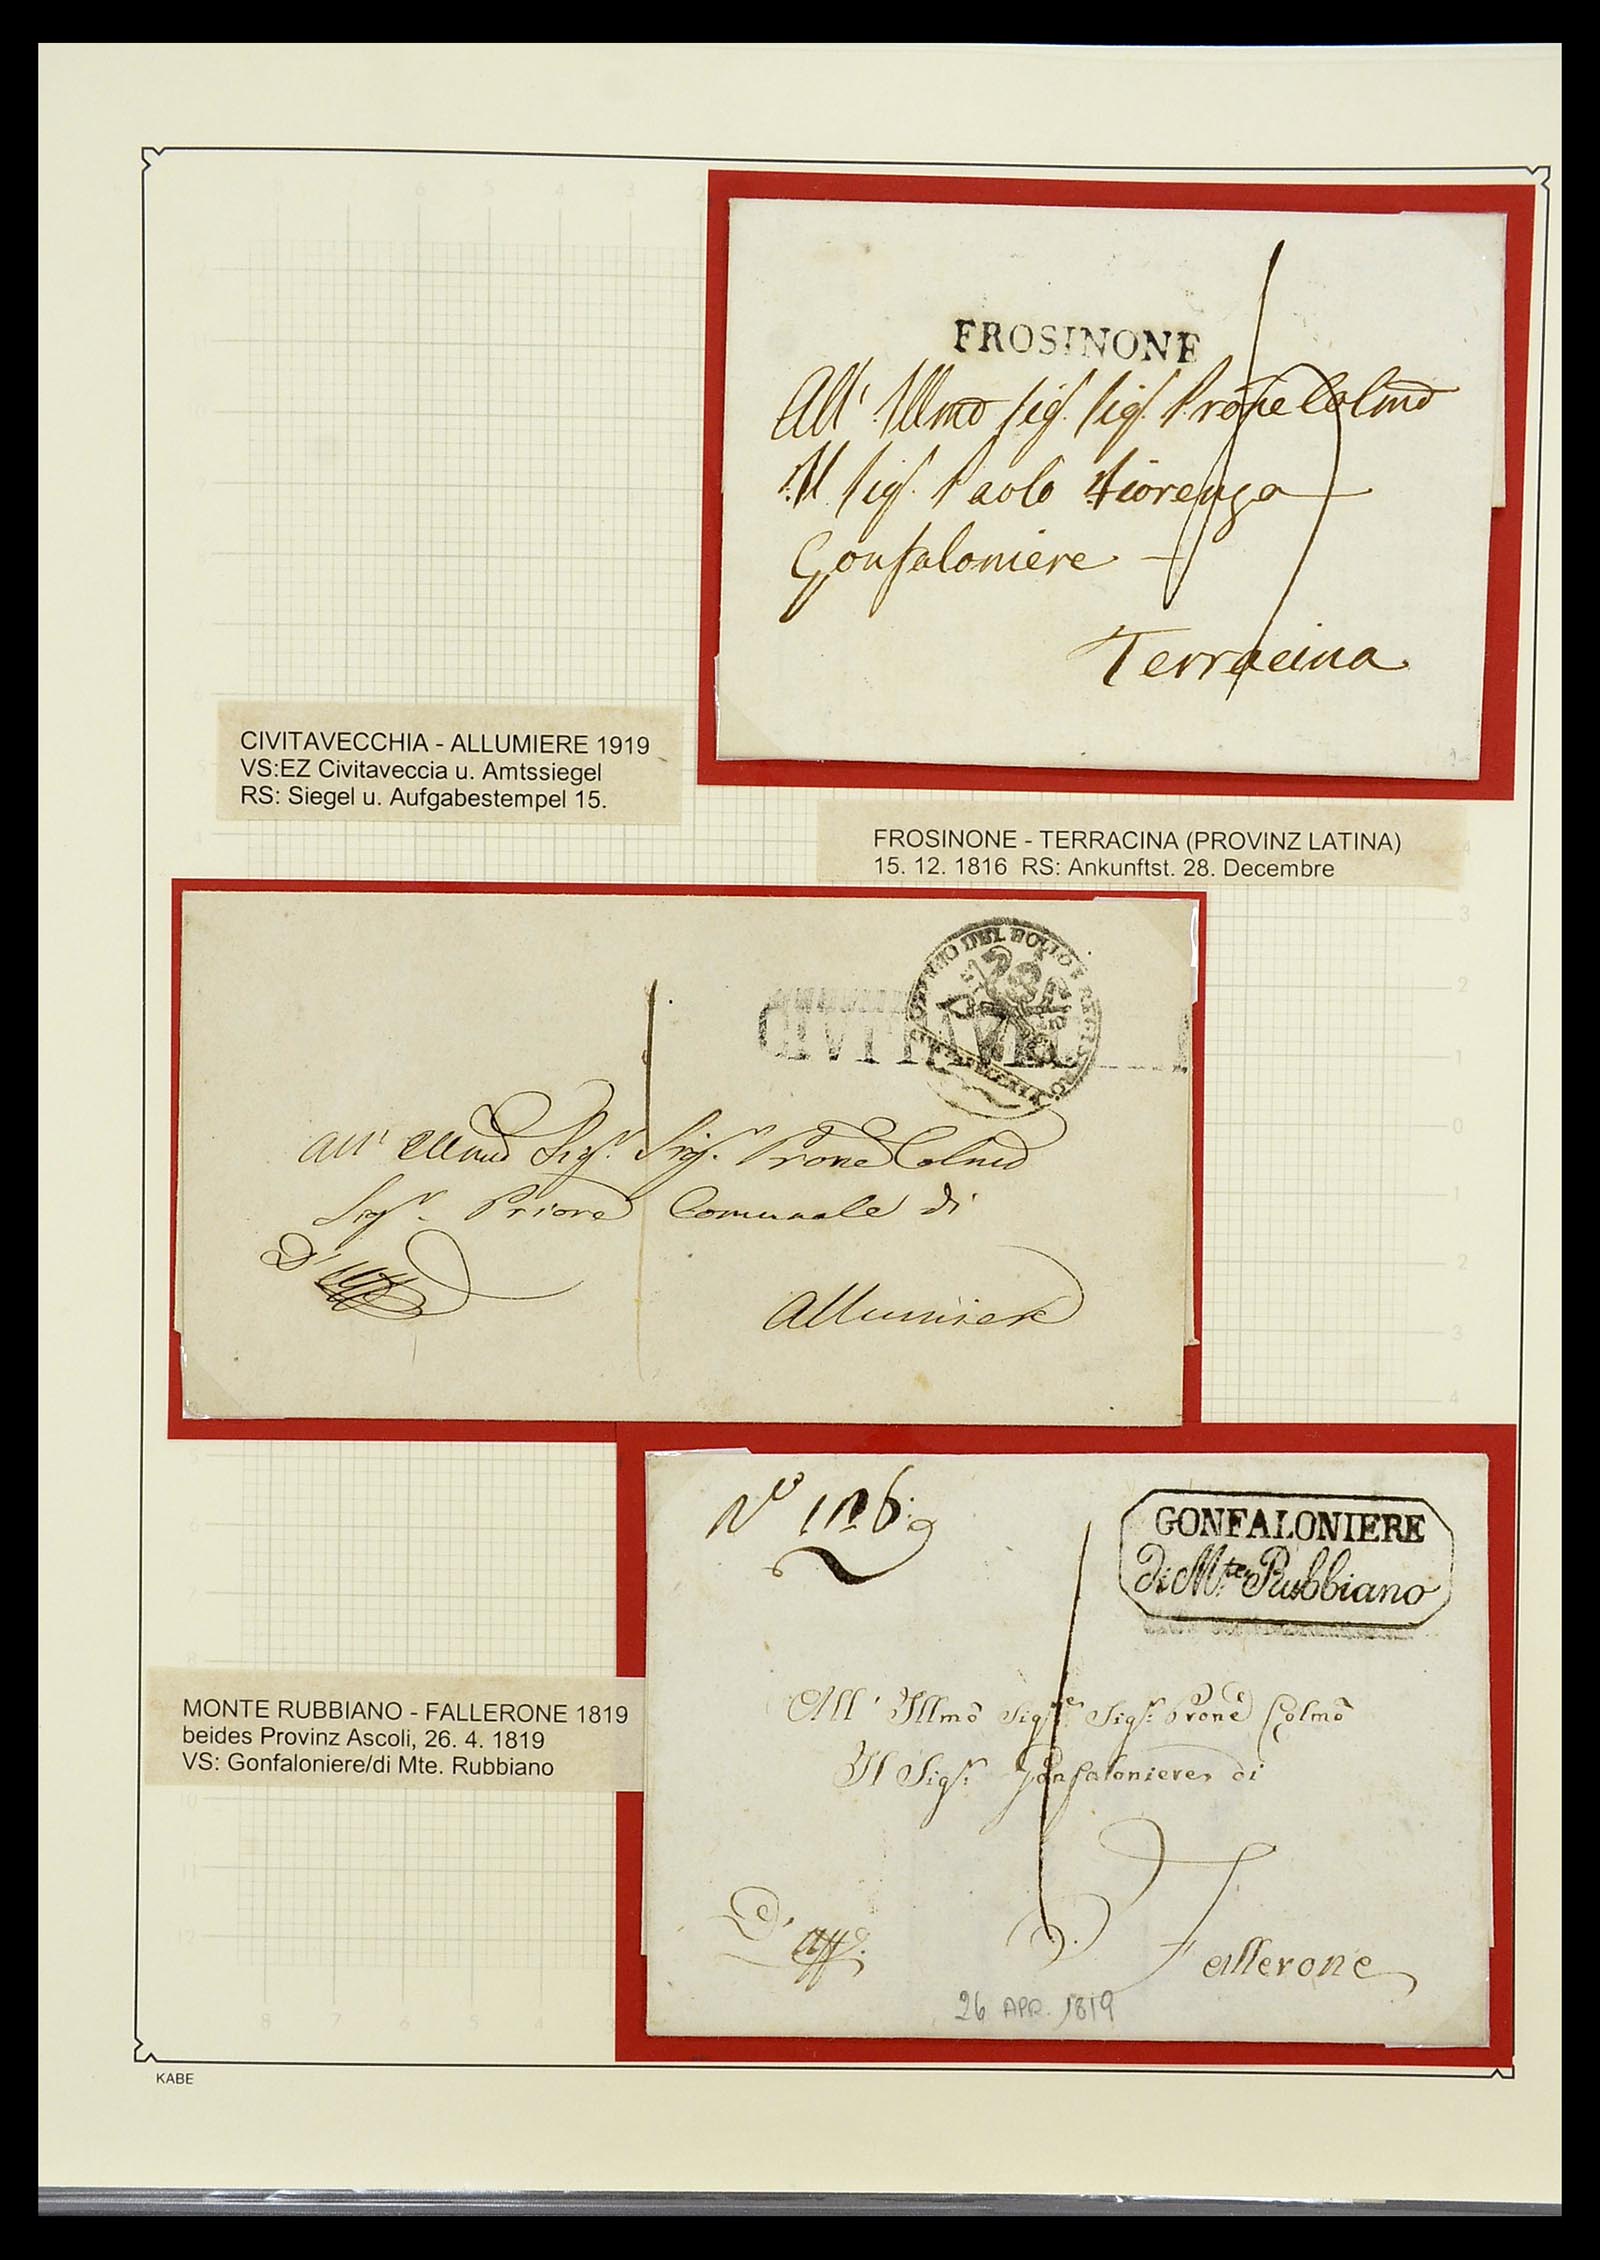 FROSINONE
All' Illmo Sig. Sig. Prone Colmo
Il Sig. Paolo Fiorenza
Gonfaloniere
Terracina
CIVITAVECCHIA - ALLUMIERE 1919
VS:EZ Civitaveccia u. Amtssiegel
RS: Siegel u. Aufgabestempel 15.
FROSINONE - TERRACINA (PROVINZ LATINA)
15. 12. 1816 RS: Ankunftst. 28. Decembre
DEL BOLLO E REGISTRO
CIVITAVEC
All' Illmo Sigr. Sigr. Prone Colmo
Sigr. Priore Comunale di
Allumiere
GONFALONIERE
di Mte. Rubbiano
All' Illmo Sigre. Sigr. Prone Colmo
Il Sigr. Gonfaloniere di
D'uff.
Fallerone
26 APR. 1819
MONTE RUBBIANO - FALLERONE 1819
beides Provinz Ascoli, 26. 4. 1819
VS: Gonfaloniere/di Mte. Rubbiano
KABE